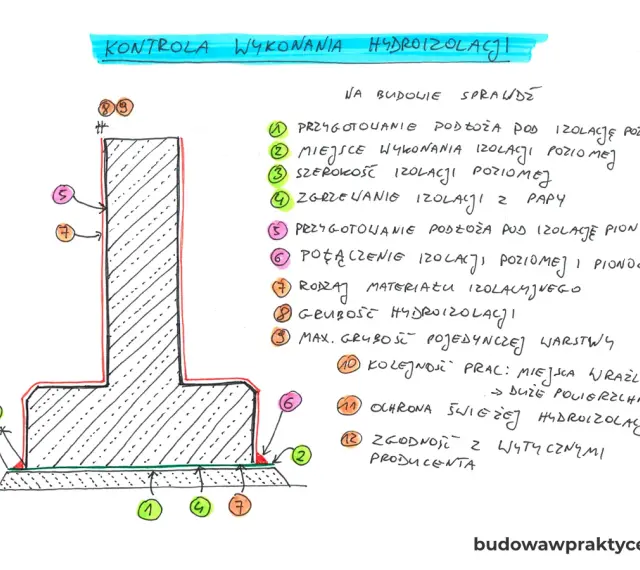 KONTROLA WYKONANIA HYDROIZOLACJI
NA BUDOWIE SPRAWDŹ
1 PRZYGOTOWANIE PODŁOŻA POD IZOLACJĘ POZ
2 MIEJSCE WYKONANIA IZOLACJI POZIOMEJ
3 SZEROKOŚĆ IZOLACJI POZIOMEJ
4 ZGRZEWANIE IZOLACJI Z PAPY
5 PRZYGOTOWANIE PODŁOŻA POD IZOLACJĘ PION
6 POŁĄCZENIE IZOLACJI POZIOMEJ I PIONO
7 RODZAJ MATERIAŁU IZOLACYJNEGO
8 GRUBOŚĆ HYDROIZOLACJI
9 MAX. GRUBOŚĆ POJEDYNCZEJ WARSTWY
10 KOLEJNOŚĆ PRAC: MIEJSCA WRAŻL
→ DUŻE POWIERZCHN
11 OCHRONA ŚWIEŻEJ HYDROIZOLAC
12 ZGODNOŚĆ Z WYTYCZNYMI
PRODUCENTA
8 9
5
7
6
2
1 4 7
budowawpraktyce